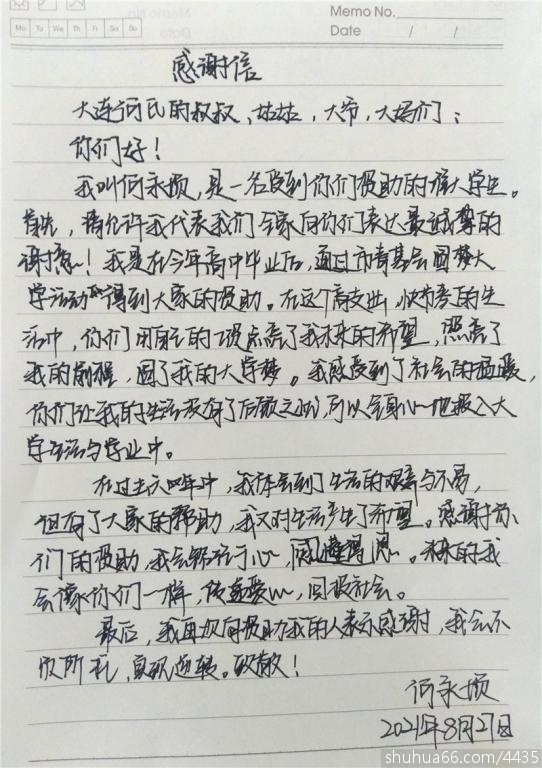 Memo No.
Mo Tu We Th Fr Sa Su
Date / /
感谢信
大连河氏的叔叔、姑姑，大爷，大妈们：
你们好！
我叫何永损，是一名受到你们资助的准大学生。
首先，请允许我代表我们全家向你们表达最诚挚的
谢意！我是在今年高中毕业后，通过市青基会圆梦大
学活动"得到大家的资助。在这个高支出，快节奏的生
活中，你们用自己的一一点亮了我未来的希望，照亮了
我的前程，圆了我的大学梦。我感受到了社会的温暖，
你们让我的生活没有了后顾之忧，可以全身心地投入大
学生活与学业中。
在过去六年中，我体会到了生活的艰辛与不易，
但有了大家的帮助，我又对生活产生了希望。感谢你
们的资助，我会铭记于心，感恩。未来的我
会像你们一样，传递爱心，回报社会。
最后，我再次向资助我的人表示感谢，我会不
负所托，实现逆转。致敬！
何永损
2021年8月27日
shuhua66.com/4435